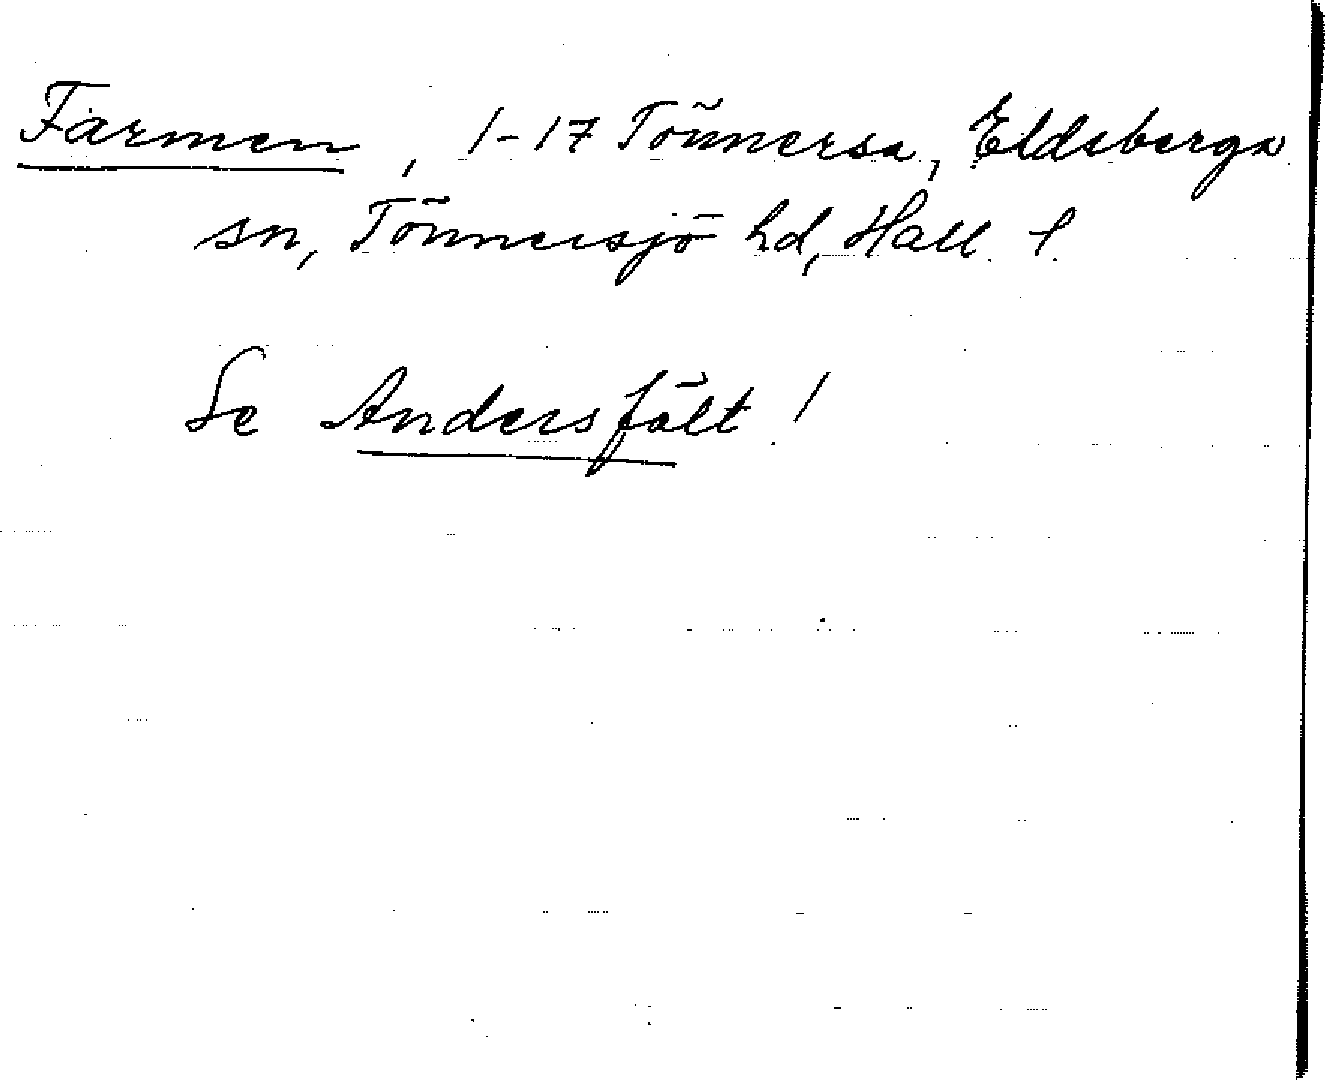 Farmen, 1-17 Tönnersa, Eldsberga
sn, Tönnersjö hd, Hall. l.
Se Andersfält!